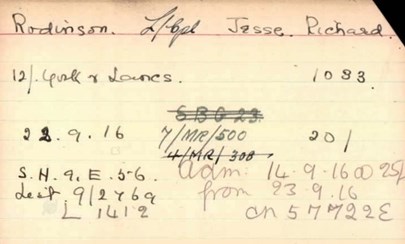 Rodinson. L/Cpl Jesse. Richard.
12/. York & Lancs. 1083
S B G 23.
22.9.16 7/MR/500 201
4/MR/308
S.H. 9. E. 56. Adm: 14.9.16 @ 25/
List. 9/2769 from 23.9.16
L 1412 CN 57722E